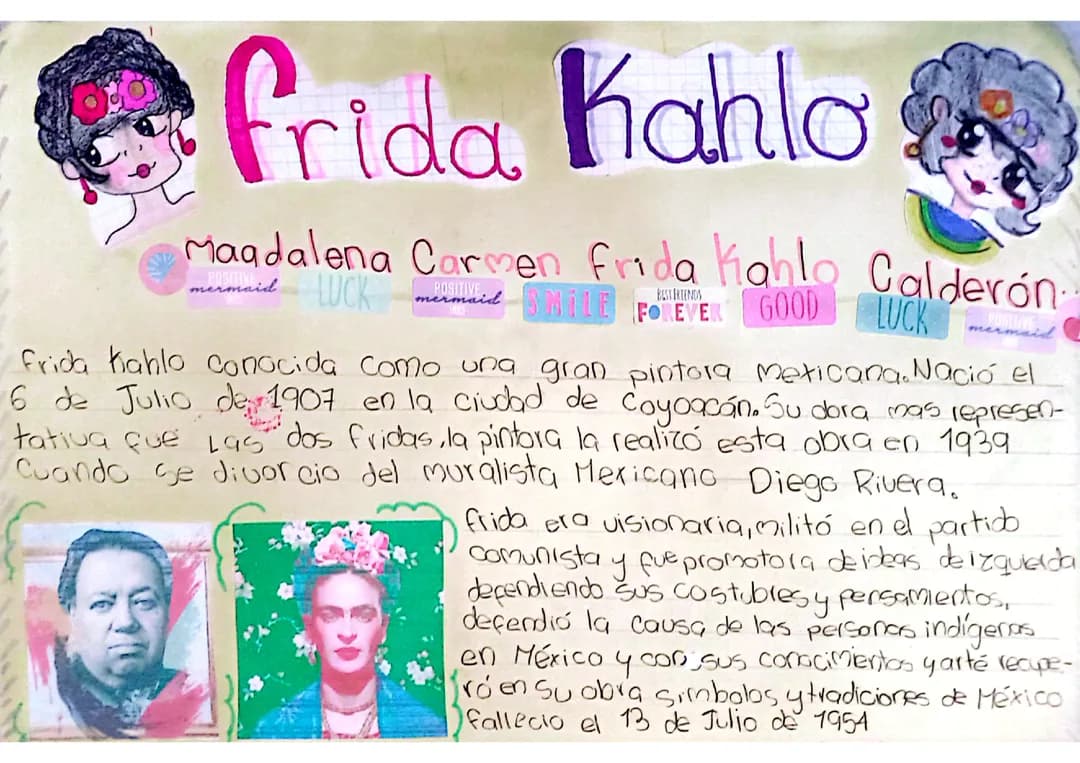 frida Kahlo
Magdalena Carmen Frida Kahlo Calderón...
POSITIVE mermaid LUCK POSITIVE mermaid SMILE BEST FRIENDS FOREVER GOOD LUCK POSITIVE mermaid
frida Kahlo conocida como una gran pintora Mexicana. Nació el
6 de Julio de 1907 en la ciudad de Coyoacán. Su obra mas represen-
tativa fué Las dos fridas, la pintora la realizó esta obra en 1939
Cuando se divorcio del muralista Mexicano Diego Rivera.
frida era visionaria, militó en el partido
comunista y fue promotora de ideas de izquierda
defendiendo sus costubres y pensamientos,
defendió la causa de las personas indígenas
en México y con sus conocimientos y arte recupe-
ró en su obra simbolos y tradiciones de México
fallecio el 13 de Julio de 1954